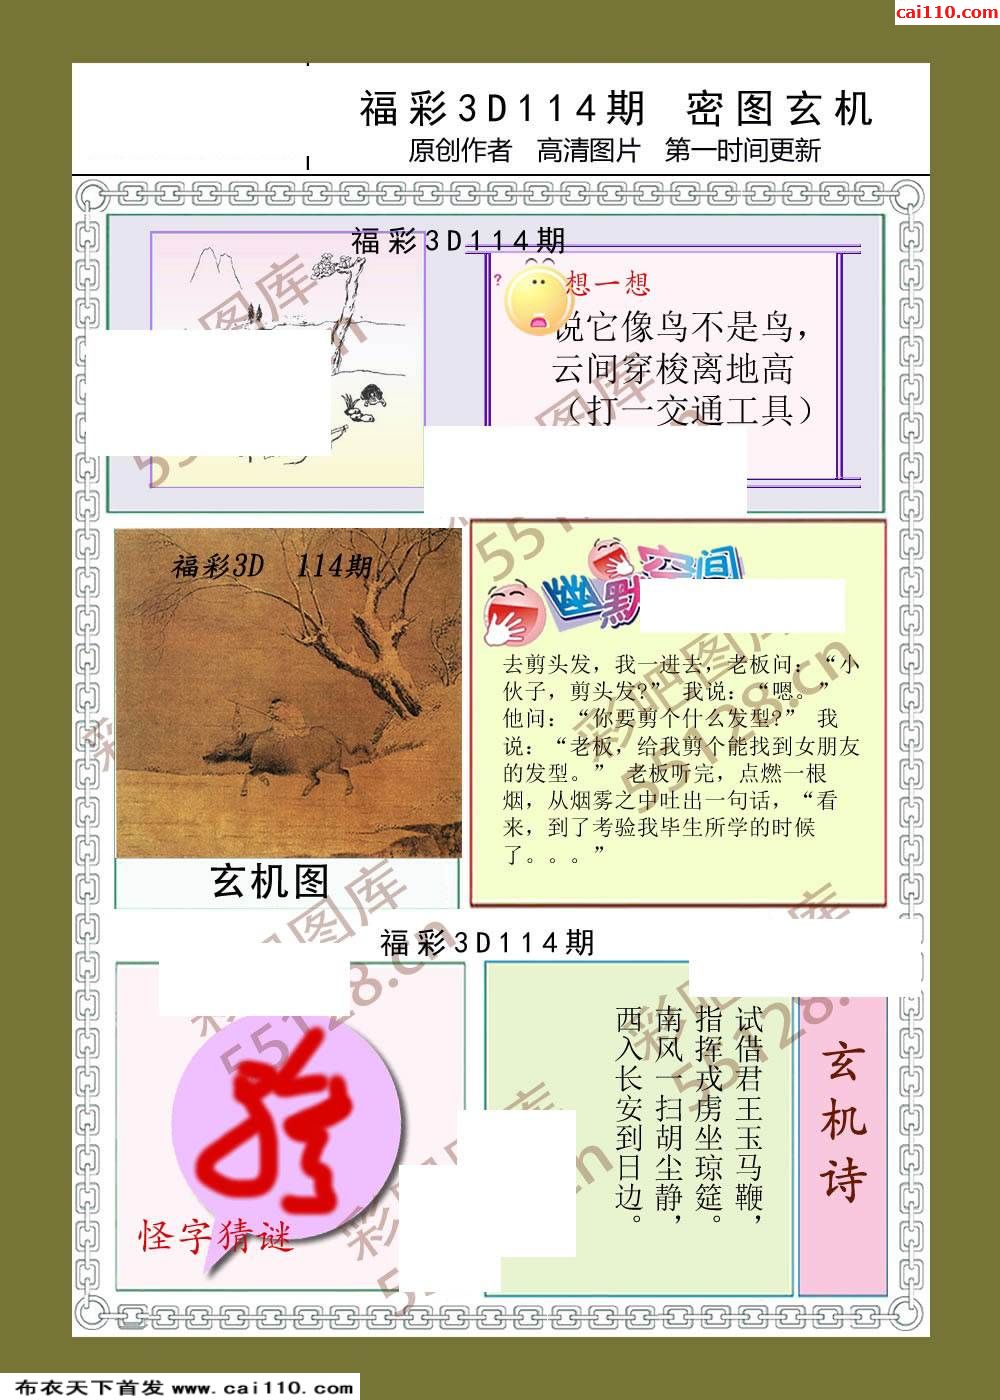 cai110.com
福彩3D114期 密图玄机
原创作者 高清图片 第一时间更新
福彩3D114期
想一想
说它像鸟不是鸟，
云间穿梭离地高
（打一交通工具）
福彩3D 114期
玄机图
幽默空间
去剪头发，我一进去，老板问：“小
伙子，剪头发?” 我说：“嗯。”
他问：“你要剪个什么发型?” 我
说：“老板，给我剪个能找到女朋友
的发型。” 老板听完，点燃一根
烟，从烟雾之中吐出一句话，“看
来，到了考验我毕生所学的时候
了。。。”
福彩3D114期
怪字猜谜
玄机诗
试借君王玉马鞭，
指挥戎虏坐琼筵。
南风一扫胡尘静，
西入长安到日边。
彩吧图库
55128.cn
布衣天下首发 www.cai110.com